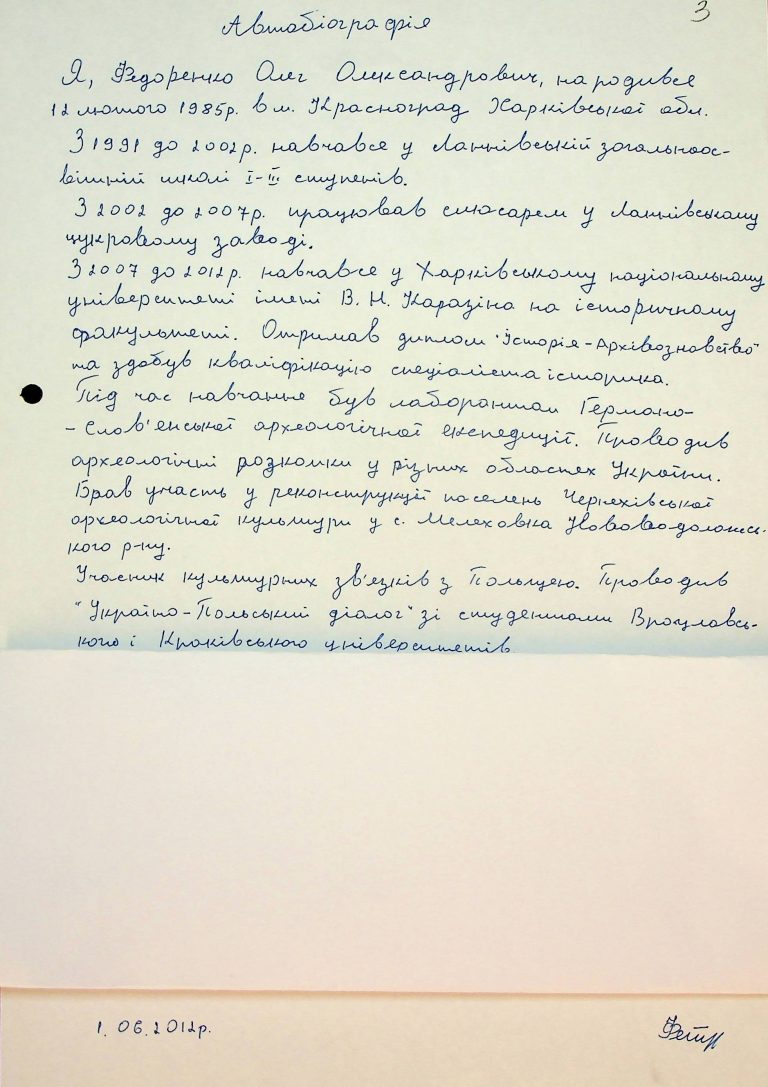 3
Автобіографія
Я, Федоренко Олег Олександрович, народився
12 лютого 1985р. в м. Красноград Харківської обл.
З 1991 до 2002р. навчався у Ланнівській загальноос-
вітній школі I-III ступенів.
З 2002 до 2007р. працював слюсарем у Ланнівському
цукровому заводі.
З 2007 до 2012р. навчався у Харківському національному
університеті імені В. Н. Каразіна на історичному
факультеті. Отримав диплом "Історія-Архівознавство"
та здобув кваліфікацію спеціаліста історика.
Під час навчання був лаборантом Германо-
-Слов'янської археологічної експедиції. Проводив
археологічні розкопки у різних областях України.
Брав участь у реконструкції поселень Черняхівської
археологічної культури у с. Мелеховка Нововодолажсь-
кого р-ну.
Учасник культурних зв'язків з Польщею. Проводив
"Україно-Польський діалог" зі студентами Вроцлавсь-
кого і Краківського університетів
1.06.2012р.